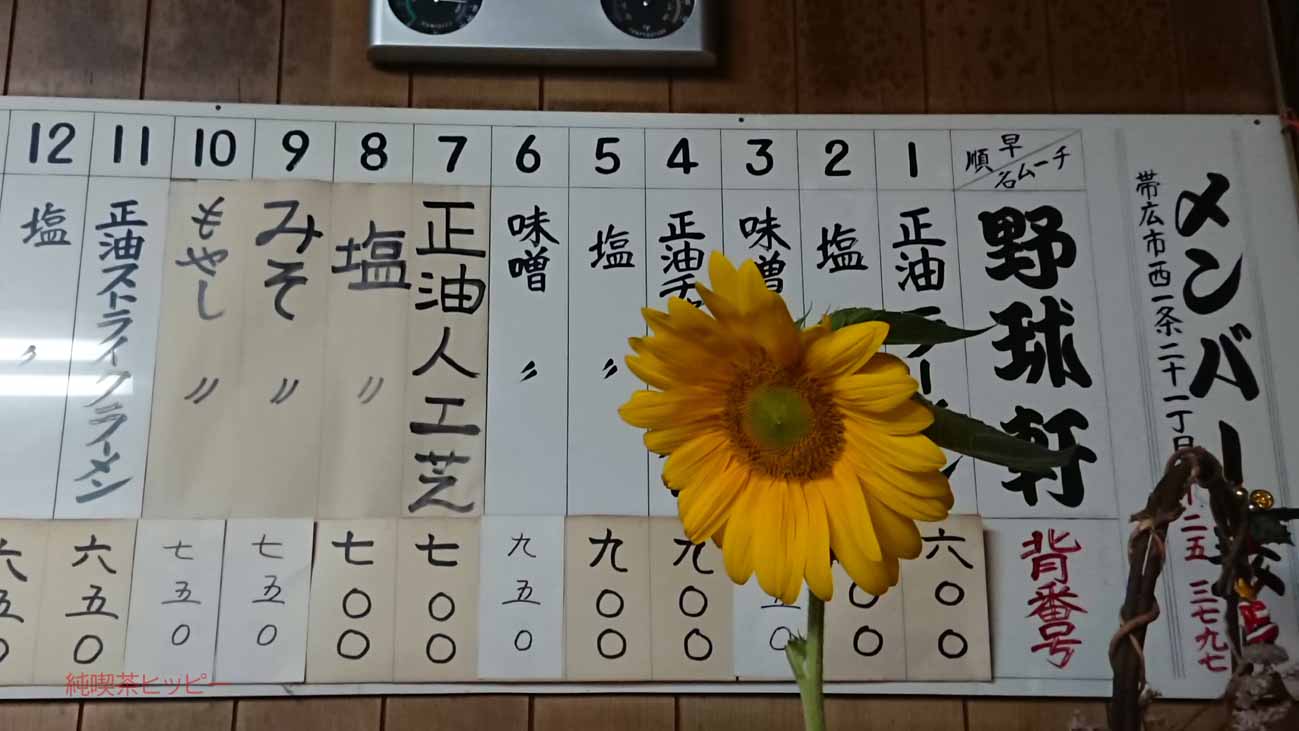 メンバー
帯広市西一条二十一丁目
二五 三七九七
早
チーム名
順
野球軒
背番号
1
正油ラーメン
六〇〇
2
塩
〇〇
3
味噌
五〇
4
正油チャ
九〇〇
5
塩 〃
九〇〇
6
味噌 〃
九五〇
7
正油人工芝
七〇〇
8
塩 〃
七〇〇
9
みそ 〃
七五〇
10
もやし 〃
七五〇
11
正油ストライクラーメン
六五〇
12
塩 〃
六五〇
純喫茶ヒッピー